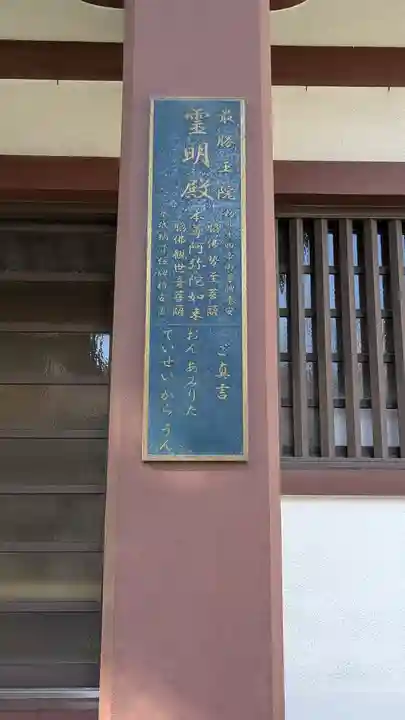 最勝王院
霊明殿
本尊阿弥陀如来
脇佛勢至菩薩
脇佛観世音菩薩
ご真言
おんあみりた
ていせいから うん